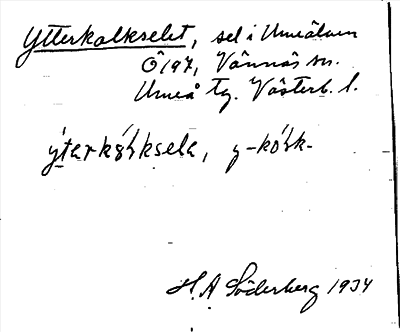 Ytterkalkselet, sel i Umeälven
Ö197, Vännäs sn.
Umeå tg. Västerb. l.
H. A Söderberg 1934